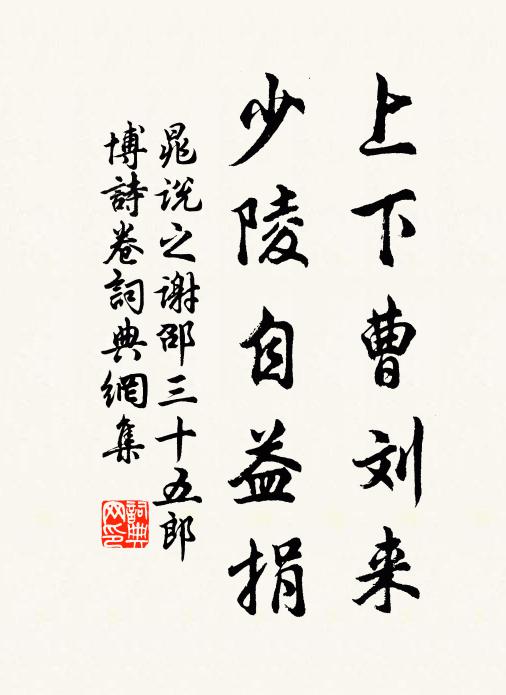 上下曹刘来
少陵自益捐
晁说之谢邵三十五郎
博詩卷詞典網集
詞典
网印